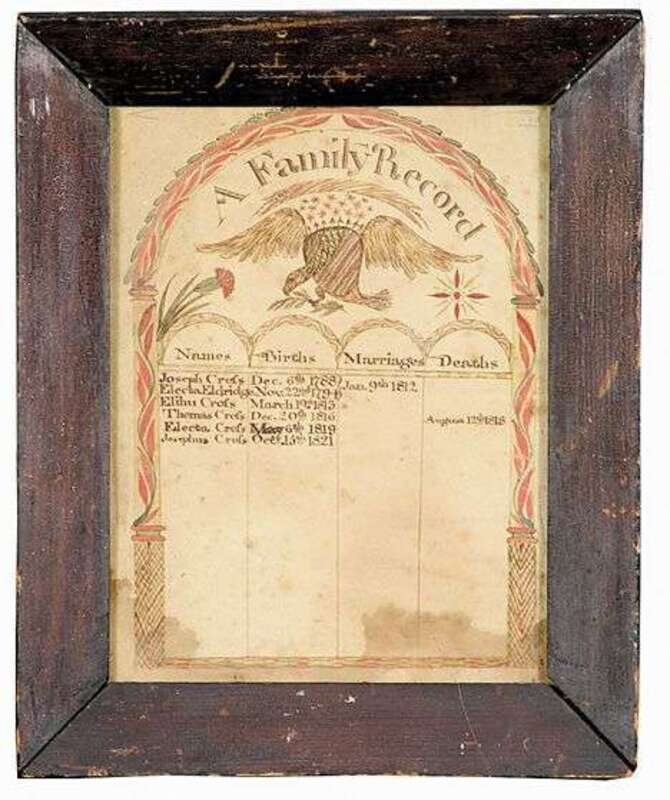 A Family Record
Names Births Marriages Deaths
Joseph Cross Dec. 6th 1788 Jan. 9th 1812
Electa Eldridge Nov. 22nd 1794
Elihu Cross March 19th 1815
Thomas Cross Dec. 20th 1816 August 12th 1818
Electa Cross May 6th 1819
Josephus Cross Oct. 15th 1821